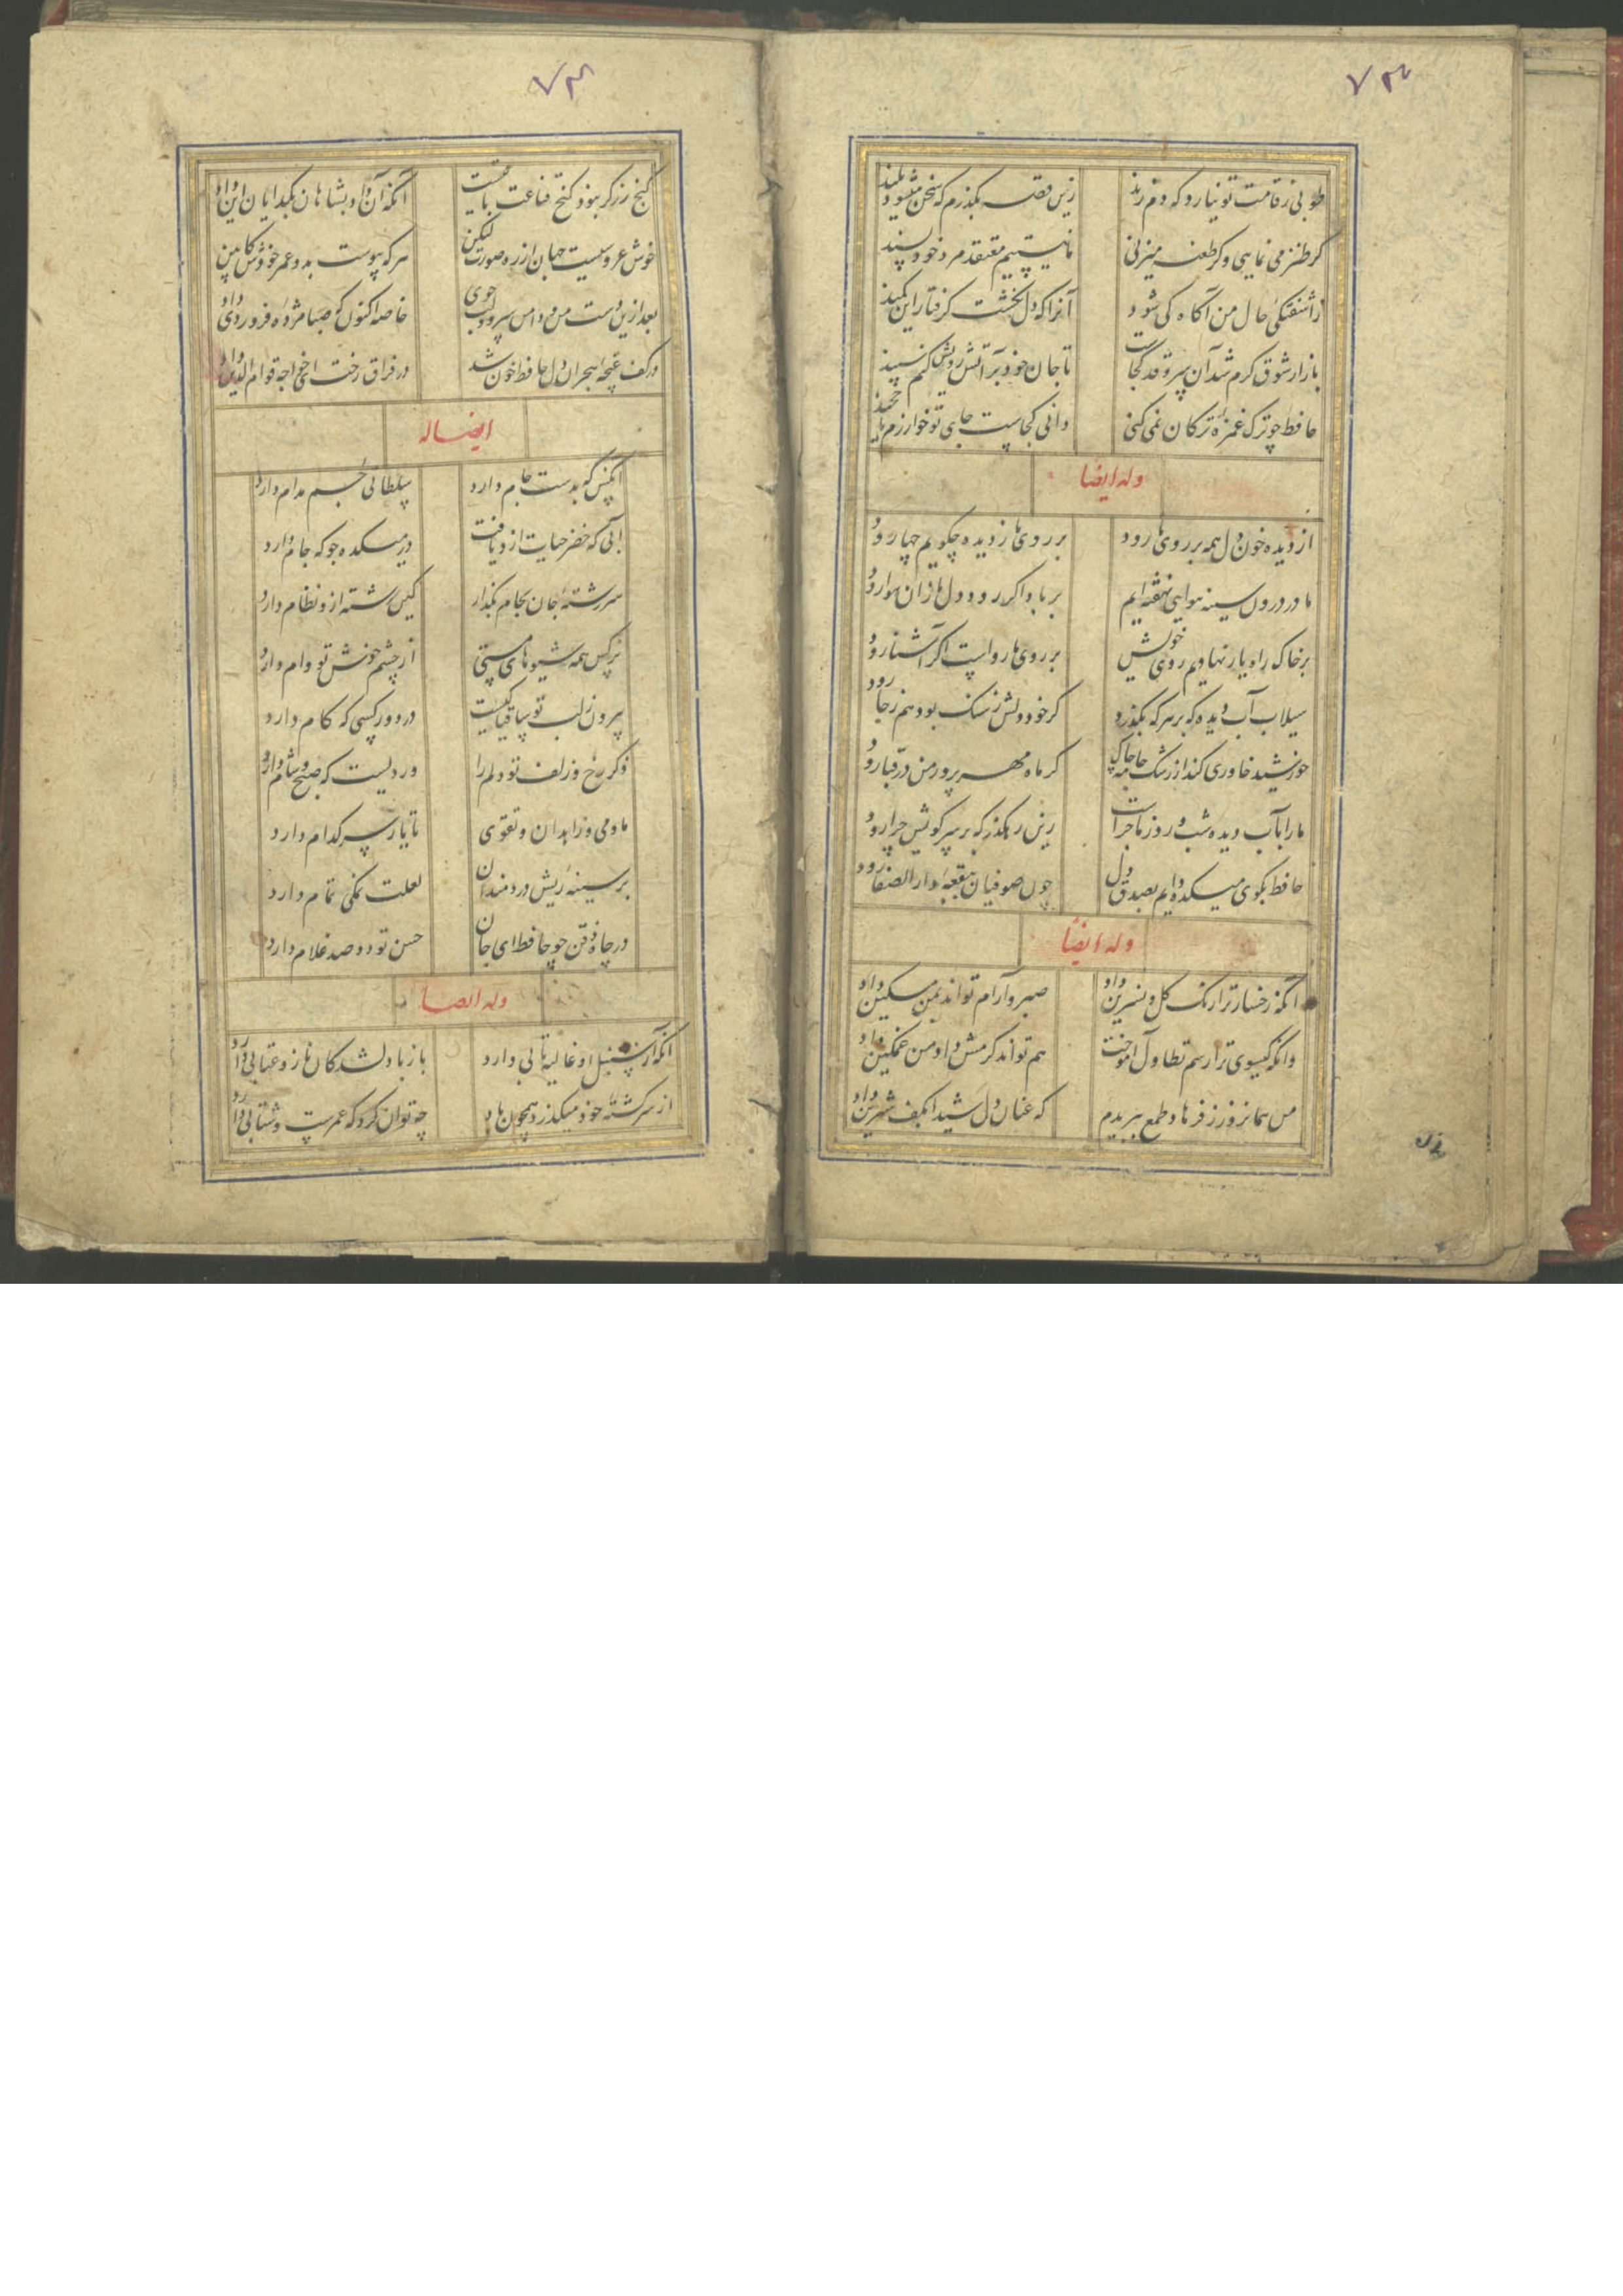 ۷۳
طوبی ز قامت تو نیارد که دم زند
زین قصه بگذرم که سخن میشود بلند
کر طنز می نمایی و کر طعنه میزنی
ما نیستیم معتقد مرد خود پسند
ز آشفتکی حال من آگاه کی شود
آنرا که دل نکشت کرفتار این کمند
بازار شوق کرم شد آن سرو قد کجاست
تا جان خود بر آتش رویش کنم سپند
حافظ چو ترک غمزه ترکان نمی کنی
دانی کجاست جای تو خوارزم یا خجند
وله ایضا
از دیده خون دل همه بر روی ما رود
بر روی ما ز دیده چکویم چها رود
ما در درون سینه هوایی نهفته ایم
بر باد اکر رود دل ما زان هوا رود
بر خاک راه یار نهادیم روی خویش
بر روی ما رواست اکر آشنا رود
سیلاب آب دیده که بر هر که بگذرد
کر خود دلش ز سنک بود هم ز جا رود
خورشید خاوری کند از رشک جامه چاک
کر ماه مهر پرور من در قبا رود
ما را بآب دیده شب و روز ماجراست
زین رهکذر که بر سر کویش چرا رود
حافظ بکوی میکده دایم بصدق دل
چون صوفیان بقعه دار الصفا رود
وله ایضا
آنکه رخسار ترا رنک کل و نسرین داد
صبر و آرام تواند بمن مسکین داد
وانکه کیسوی ترا رسم تطاول آموخت
هم تواند کرمش داد من غمکین داد
من همانروز ز فرهاد طمع ببریدم
که عنان دل شیدا بکف شیرین داد
۷۳
کنج زر کر نبود کنج قناعت باقیست
آنکه آن داد بشاهان بکدایان این داد
خوش عروسیست جهان از ره صورت لیکن
هر که پیوست بدو عمر خودش کابین داد
بعد ازین دست من و دامن سرو و لب جوی
خاصه اکنون که صبا مژده فروردین داد
در کف غصه هجران دل حافظ خون شد
در فراق رخت ای خواجه قوام الدین داد
ایضا له
آنکس که بدست جام دارد
سلطانی جم مدام دارد
آبی که خضر حیات ازو یافت
در میکده جو که جام دارد
سررشته جان بجام بکذار
کین رشته ازو نظام دارد
نرکس همه شیوه های مستی
از چشم خوشش تو وام دارد
بیرون ز لب تو ساقیا نیست
در دور کسی که کام دارد
ذکر رخ و زلف تو دلم را
وردیست که صبح و شام دارد
ما و می و زاهدان و تقوی
تا یار سر کدام دارد
بر سینه ریش دردمندان
لعلت نمکی تمام دارد
در چاه ذقن چو حافظ ای جان
حسن تو دو صد غلام دارد
وله ایضا
آنکه از سنبل او غالیه تابی دارد
باز با دلشدکان ناز و عتابی دارد
از سر کشته خود میکذرد همچون باد
چه توان کرد که عمرست و شتابی دارد